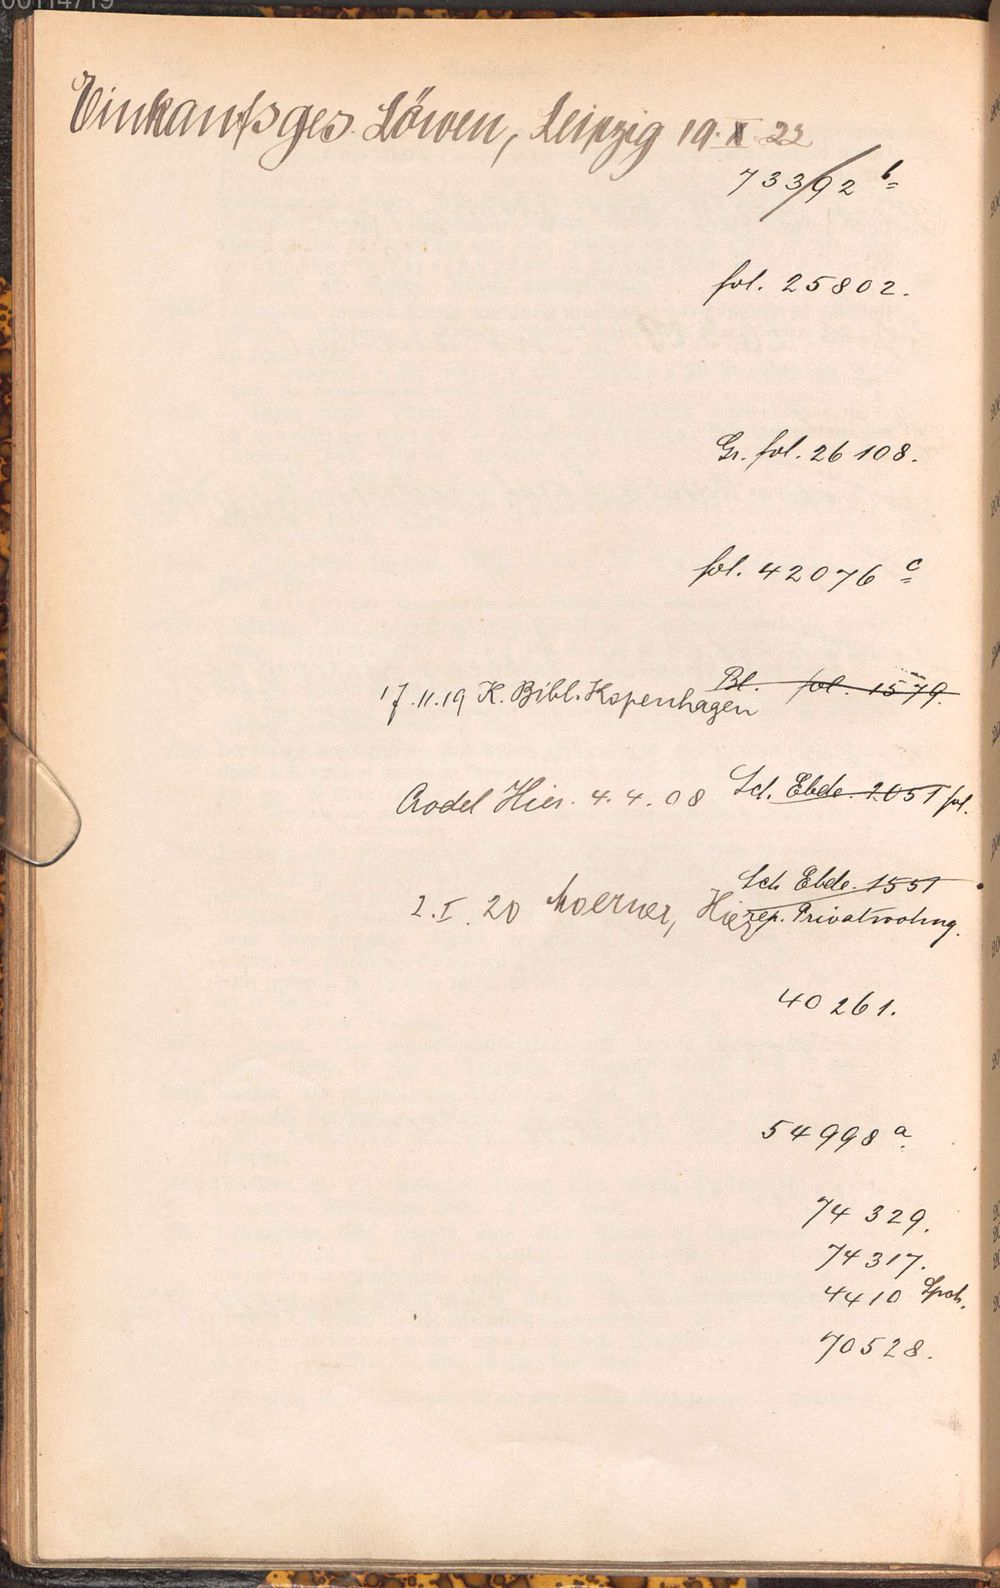 00114719
Einkaufsges. Löwen, Leipzig 19. X 22
73392 b
fol. 25802.
Gr. fol. 26108.
fol. 42076 c
17.11.19 K. Bibl. Kopenhagen Bl. fol. 1579.
Hier. 4.4.08 Sch. Ebde. 2051 fol.
Sch Ebde. 1551
2. I. 20 Moerner, Hier rep. Privatwohng.
40261.
54998 a.
74329.
74317.
4410
70528.